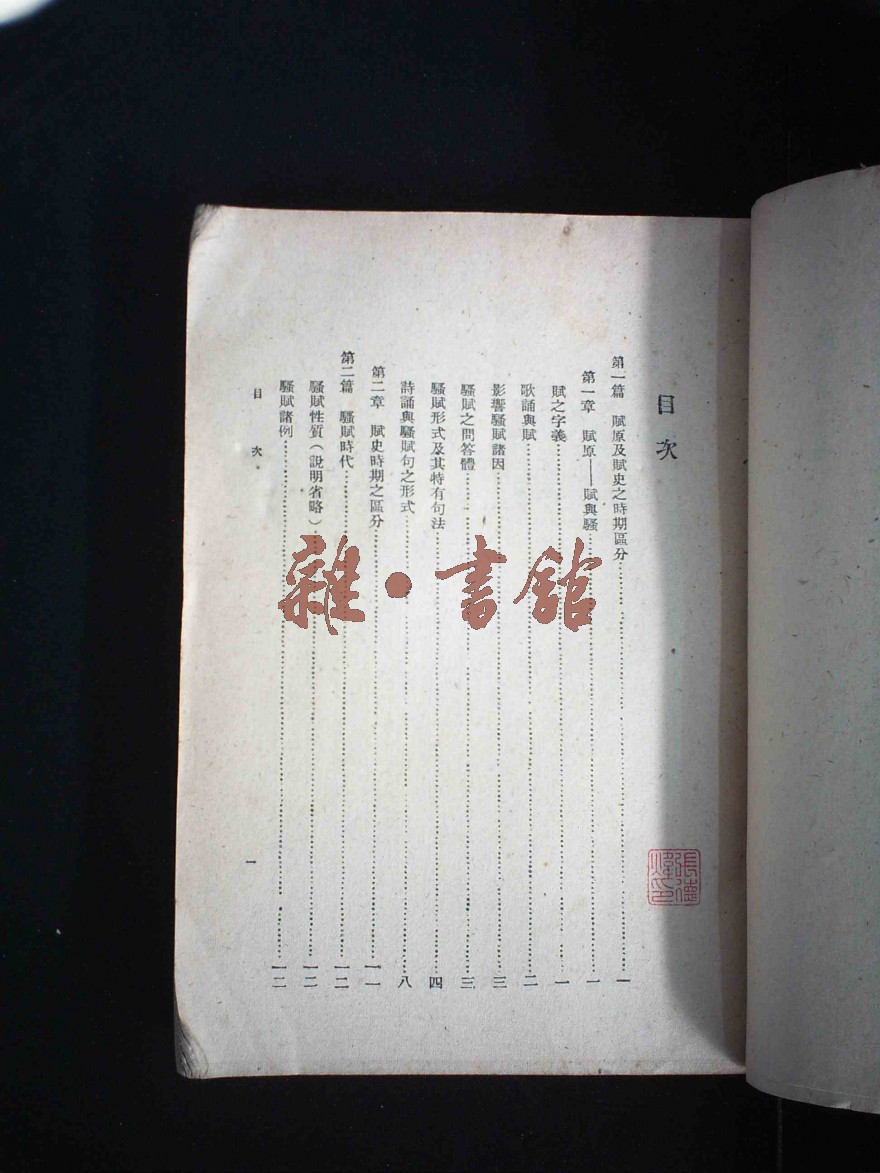 目次
第一篇 賦原及賦史之時期區分……一
第一章 賦原——賦與騷……一
賦之字義……一
歌誦與賦……二
影響騷賦諸因……三
騷賦之問答體……三
騷賦形式及其特有句法……四
詩誦與騷賦句之形式……八
第二章 賦史時期之區分……一一
第二篇 騷賦時代……一二
騷賦性質（說明省略）……一二
騷賦諸例……一二
目次
一
雜·書館
張德
印